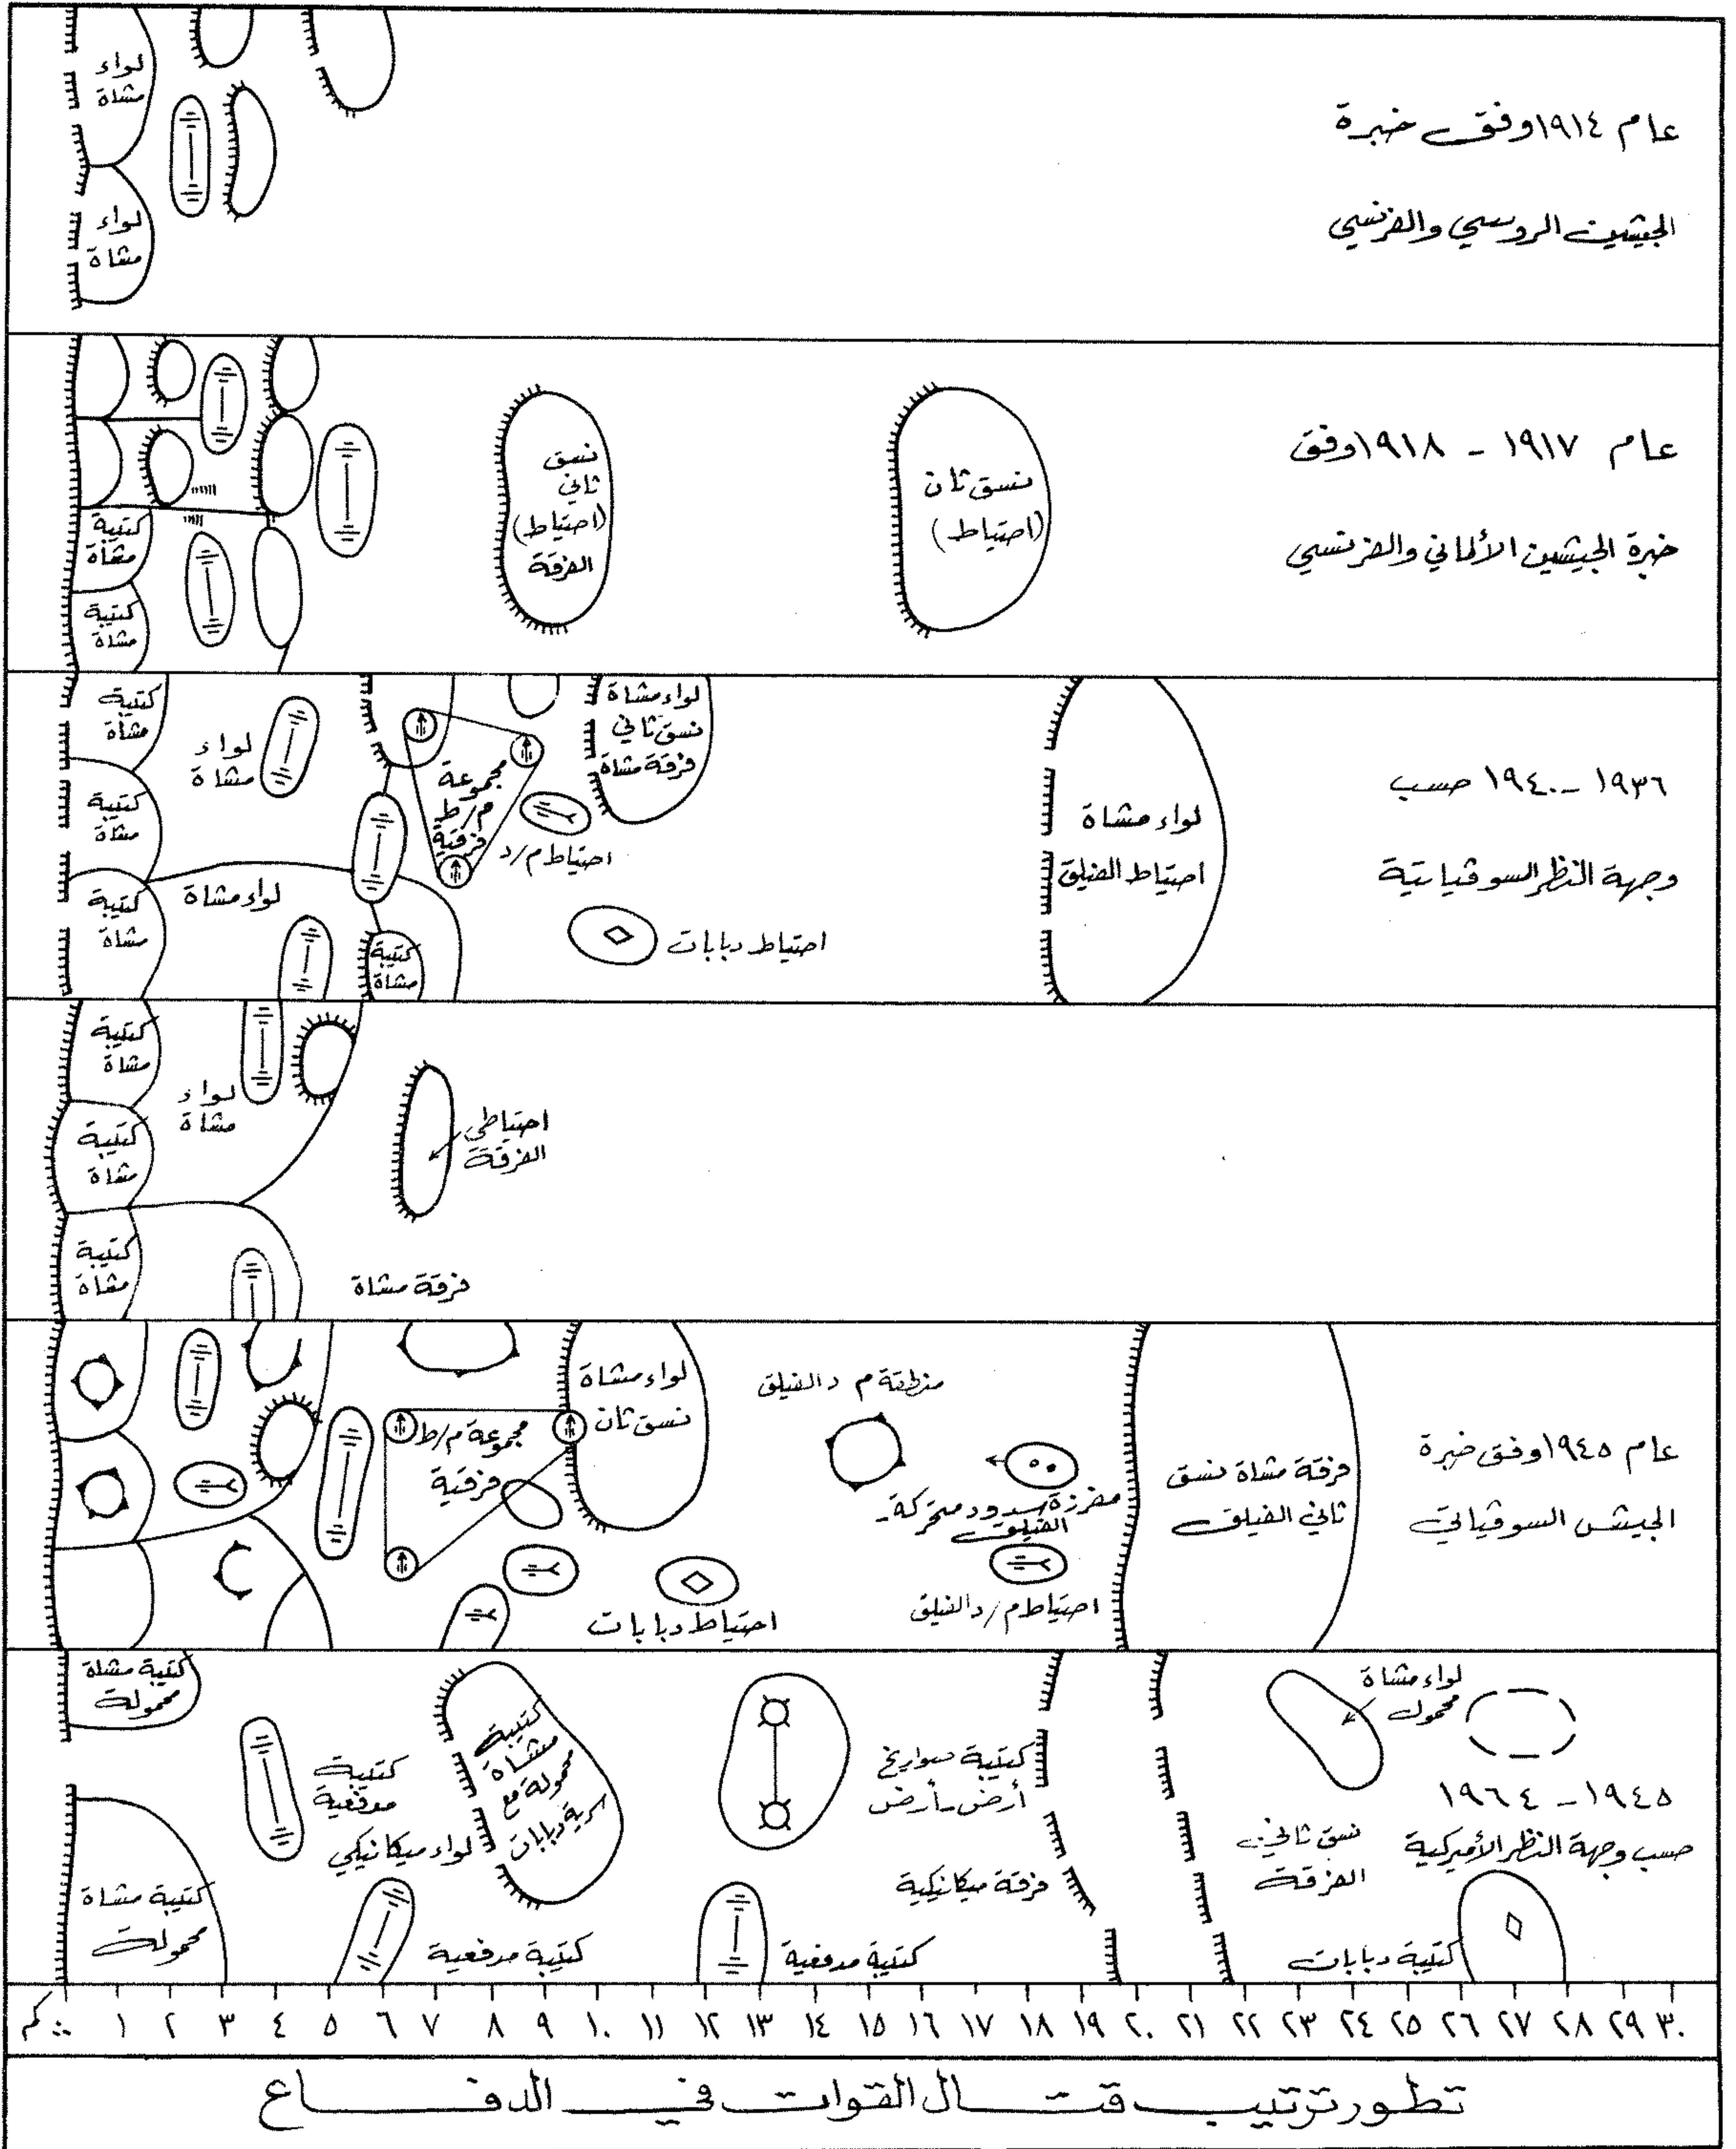 عام ١٩١٤ وفق خبرة
الجيشين الروسي والفرنسي
لواء
مشاة
لواء
مشاة
عام ١٩١٧ - ١٩١٨ وفق
خبرة الجيشين الألماني والفرنسي
نسق ثان
(احتياط)
نسق
ثاني
(احتياط)
الفرقة
كتيبة
مشاة
كتيبة
مشاة
١٩٣٦ - ١٩٤٠ حسب
وجهة النظر السوفياتية
لواء مشاة
احتياط الفيلق
لواء مشاة
نسق ثاني
فرقة مشاة
مجموعة
م/ط
فرقية
احتياط م/د
احتياط دبابات
لواء
مشاة
لواء مشاة
كتيبة
مشاة
كتيبة
مشاة
كتيبة
مشاة
كتيبة
مشاة
احتياطي
الفرقة
فرقة مشاة
لواء
مشاة
كتيبة
مشاة
كتيبة
مشاة
كتيبة
مشاة
عام ١٩٤٥ وفق خبرة
الجيش السوفياتي
فرقة مشاة نسق
ثاني الفيلق
منطقة م د الفيلق
مفرزة سدود متحركة
الفيلق
احتياط م/د الفيلق
لواء مشاة
نسق ثان
مجموعة م/ط
فرقية
احتياط دبابات
لواء مشاة
محمول
١٩٤٥ - ١٩٦٤
حسب وجهة النظر الأميركية
نسق ثاني
الفرقة
كتيبة دبابات
كتيبة صواريخ
أرض - أرض
فرقة ميكانيكية
كتيبة مدفعية
كتيبة
مشاة
محمولة مع
سرية دبابات
كتيبة
مدفعية
لواء ميكانيكي
كتيبة مدفعية
كتيبة مشاة
محمولة
كتيبة مشاة
محمولة
كم ٠ ١ ٢ ٣ ٤ ٥ ٦ ٧ ٨ ٩ ١٠ ١١ ١٢ ١٣ ١٤ ١٥ ١٦ ١٧ ١٨ ١٩ ٢٠ ٢١ ٢٢ ٢٣ ٢٤ ٢٥ ٢٦ ٢٧ ٢٨ ٢٩ ٣٠
تطور ترتيب قتال القوات في الدفاع